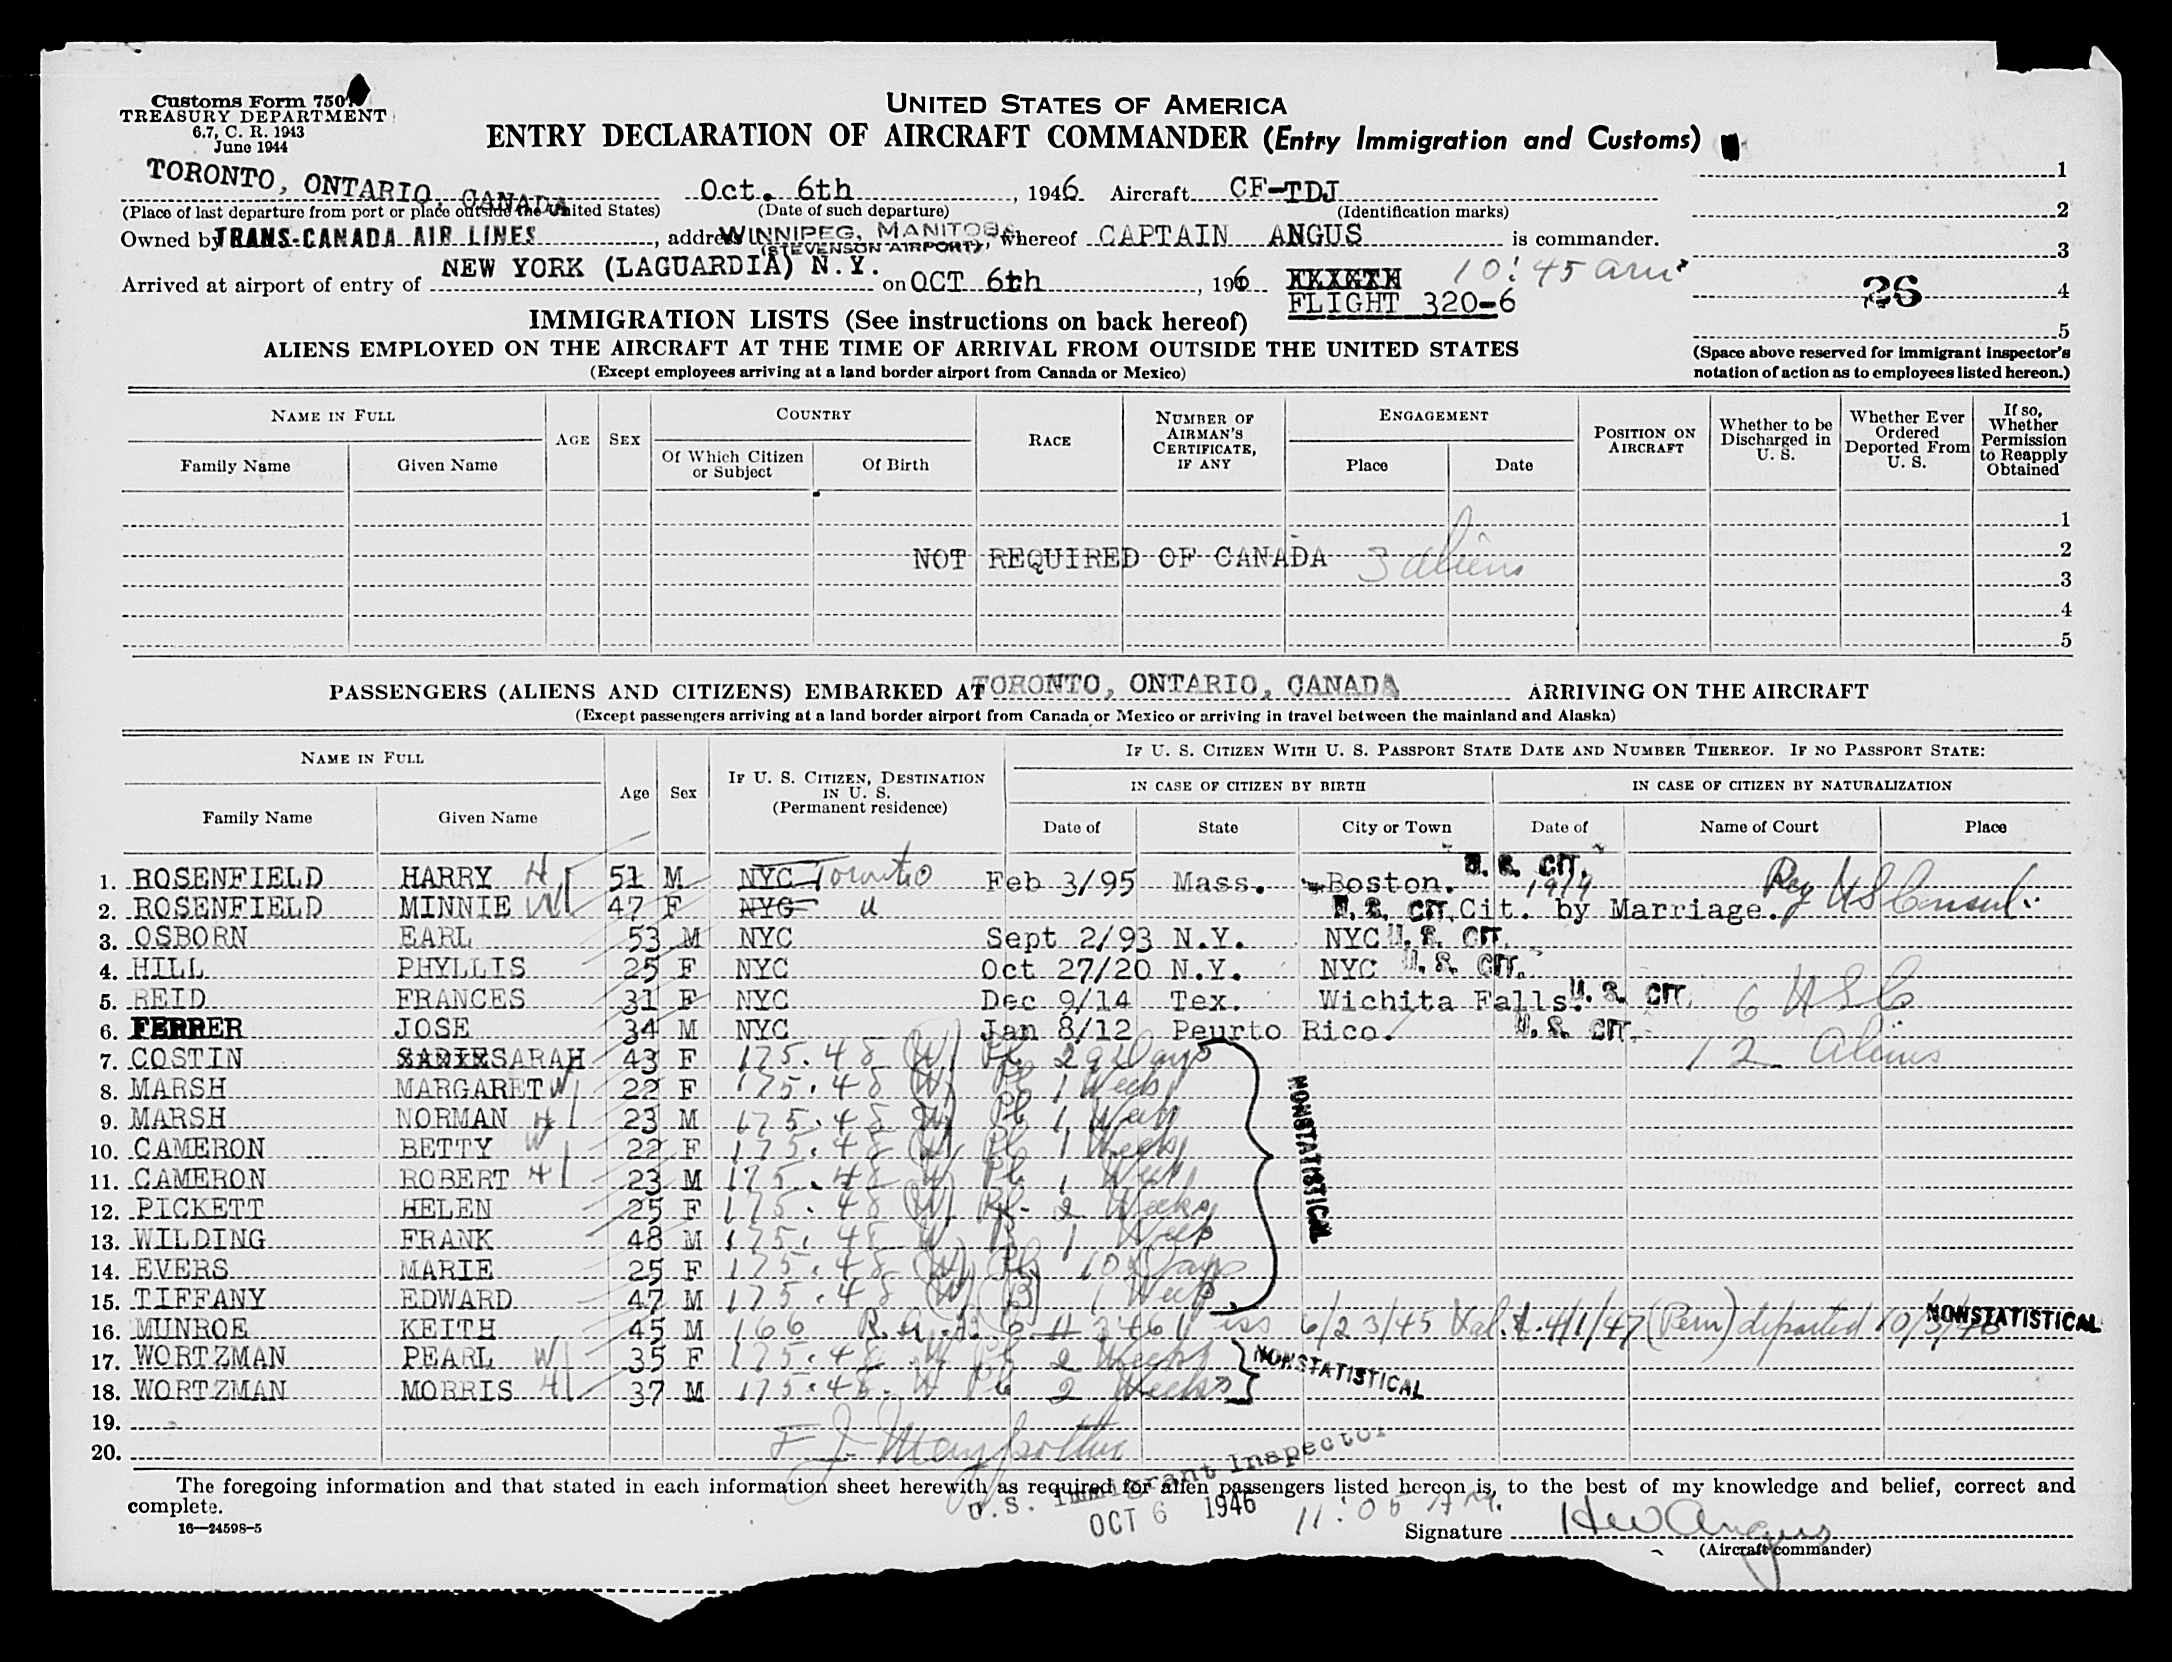 Customs Form 750
TREASURY DEPARTMENT
6.7, C. R. 1943
June 1944
UNITED STATES OF AMERICA
ENTRY DECLARATION OF AIRCRAFT COMMANDER (Entry Immigration and Customs)
TORONTO, ONTARIO, CANADA Oct. 6th, 1946 Aircraft CF-TDJ 1
(Place of last departure from port or place outside the United States) (Date of such departure) (Identification marks) 2
Owned by TRANS-CANADA AIR LINES, address WINNIPEG, MANITOBA (STEVENSON AIRPORT), whereof CAPTAIN ANGUS is commander. 3
Arrived at airport of entry of NEW YORK (LAGUARDIA) N.Y. on OCT 6th, 196 10:45 am 26 4
FLIGHT 320-6
IMMIGRATION LISTS (See instructions on back hereof) 5
ALIENS EMPLOYED ON THE AIRCRAFT AT THE TIME OF ARRIVAL FROM OUTSIDE THE UNITED STATES
(Except employees arriving at a land border airport from Canada or Mexico)
(Space above reserved for immigrant inspector's notation of action as to employees listed hereon.)
NAME IN FULL AGE SEX COUNTRY RACE NUMBER OF AIRMAN'S CERTIFICATE, IF ANY ENGAGEMENT POSITION ON AIRCRAFT Whether to be Discharged in U. S. Whether Ever Ordered Deported From U. S. If so, Whether Permission to Reapply Obtained
Family Name Given Name Of Which Citizen or Subject Of Birth Place Date
1
NOT REQUIRED OF CANADA 3 aliens 2
3
4
5
PASSENGERS (ALIENS AND CITIZENS) EMBARKED AT TORONTO, ONTARIO, CANADA ARRIVING ON THE AIRCRAFT
(Except passengers arriving at a land border airport from Canada or Mexico or arriving in travel between the mainland and Alaska)
NAME IN FULL Age Sex IF U. S. CITIZEN, DESTINATION IN U. S. (Permanent residence) IF U. S. CITIZEN WITH U. S. PASSPORT STATE DATE AND NUMBER THEREOF. IF NO PASSPORT STATE:
IN CASE OF CITIZEN BY BIRTH IN CASE OF CITIZEN BY NATURALIZATION
Family Name Given Name Date of State City or Town Date of Name of Court Place
1. ROSENFIELD HARRY H 51 M NYC Toronto Feb 3/95 Mass. Boston. U. S. CIT. 1919 Reg US Consul.
2. ROSENFIELD MINNIE W 47 F NYC " U. S. CIT. Cit. by Marriage.
3. OSBORN EARL 53 M NYC Sept 2/93 N.Y. NYC U. S. CIT.
4. HILL PHYLLIS 25 F NYC Oct 27/20 N.Y. NYC U. S. CIT.
5. REID FRANCES 31 F NYC Dec 9/14 Tex. Wichita Falls. U. S. CIT. 6 USC
6. FERRER JOSE 34 M NYC Jan 8/12 Peurto Rico. U. S. CIT.
7. COSTIN SADIE SARAH 43 F 175.48 (W) Pl 29 Days 12 Aliens
8. MARSH MARGARET W 22 F 175.48 (W) Pl 1 Week
9. MARSH NORMAN H 23 M 175.48 W Pl 1 Week
10. CAMERON BETTY W 22 F 175.48 (W) Pl 1 Week
11. CAMERON ROBERT H 23 M 175.48 W Pl 1 Week
12. PICKETT HELEN 25 F 175.48 (W) Pl. 2 Weeks
13. WILDING FRANK 48 M 175.48 W B 1 Week
14. EVERS MARIE 25 F 175.48 (W) Pl 10 Days
15. TIFFANY EDWARD 47 M 175.48 (W) (B) 1 Week
NONSTATISTICAL
16. MUNROE KEITH 45 M 166 iss 6/23/45 Val. 4/1/47 (Perm) departed NONSTATISTICAL
17. WORTZMAN PEARL W 35 F 175.48 W Pl 2 Weeks NONSTATISTICAL
18. WORTZMAN MORRIS H 37 M 175.48. W Pl 2 Weeks
19.
20.
U.S. Immigrant Inspector
The foregoing information and that stated in each information sheet herewith as required for alien passengers listed hereon is, to the best of my knowledge and belief, correct and
complete.
OCT 6 1946 11:05 AM.
16—24598-5
Signature HW Angus
(Aircraft commander)